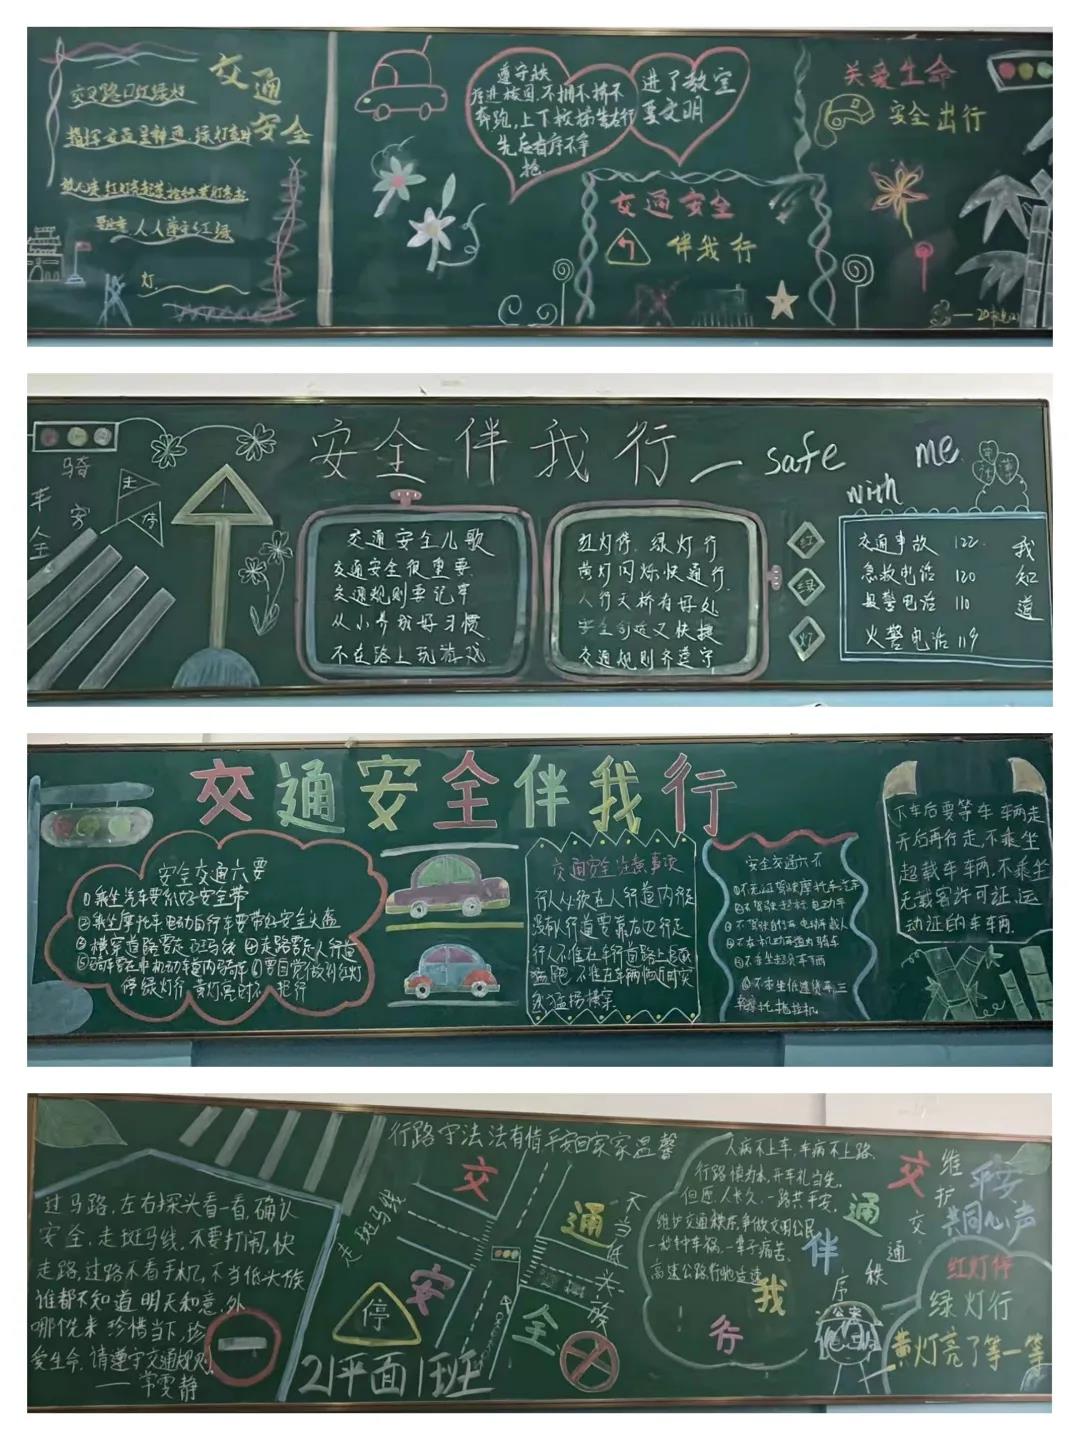 交通
安全
交叉路口红绿灯
指挥交通显神通,绿灯亮时
人人遵守红绿
灯.
遵守秩
序进校园,不拥不挤不
奔跑,上下校梯靠右行
先后有序不争
抢.
进了教室
要文明
交通安全
伴我行
关爱生命
安全出行
安全伴我行—safe with me
骑
车
安
全
走
停
交通安全儿歌
交通安全很重要
交通规则要记牢
从小养成好习惯
不在路上玩游戏
红灯停,绿灯行
黄灯闪烁快通行
人行天桥有好处
安全创造又快捷
交通规则齐遵守
红
绿
灯
交通事故 122
急救电话 120
报警电话 110
火警电话 119
我
知
道
交通安全伴我行
安全交通六要
①乘坐汽车要系好安全带
②乘坐摩托车电动自行车要带好安全头盔
③横穿道路要走斑马线 ④走路要走人行道
⑤骑车要在非机动车道内骑车 ⑥要自觉做到红灯
停绿灯行,黄灯亮时不抢行
交通安全注意事项
行人必须在人行道内行走
没有人行道要靠右边行走
行人不准在车行道路上追逐
猛跑,不准在车辆临近时突
然猛拐横穿.
安全交通六不
①不无证驾驶摩托车汽车
④不在机动车道内骑车
⑤不乘坐超员车辆
⑥不乘坐低速货车,三
轮摩托拖拉机
下车后要等车车辆走
开后再行走,不乘坐
超载车车辆,不乘坐
无载客许可证,运
动证的车车辆.
行路守法法有情平安回家家温馨
过马路,左右探头看一看,确认
安全,走斑马线,不要打闹,快
走路,过路不看手机,不当低头族
谁都不知道明天和意外
哪个先来 珍惜当下,珍
爱生命,请遵守交通规则.
——常雯静
走斑马线
交
通
安
全
停
不当低头族
21平面1班
人病不上车,车病不上路.
行路慎为本,开车礼当先.
但愿人长久,一路共平安.
维护交通秩序,争做文明公民
一秒钟车祸,一辈子痛苦.
高速公路行驰
交
通
伴
我
行
维护交通秩序
平安
共同心声
红灯停
绿灯行
黄灯亮了等一等